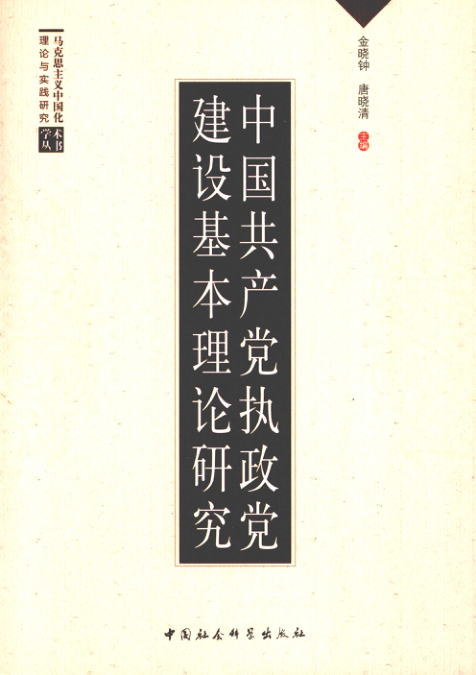 金晓钟 唐晓清 主编
中国共产党执政党
建设基本理论研究
马克思主义中国化
理论与实践研究
学术
丛书
中国社会科学出版社